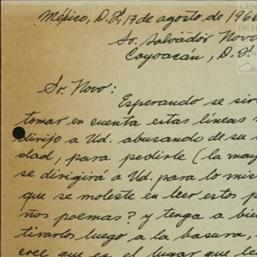 México, D.F., 17 de agosto de 196
Sr. Salvador Novo
Coyoacán, D.F.
Sr. Novo:
Esperando se sir
tomar en cuenta estas líneas
dirijo a Ud. abusando de su
dad, para pedirle (la may
se dirigirá a Ud. para lo mis
que se moleste en leer estos p
ños poemas? y tenga a bie
tirarlos luego a la basura,
cree que es el lugar que le